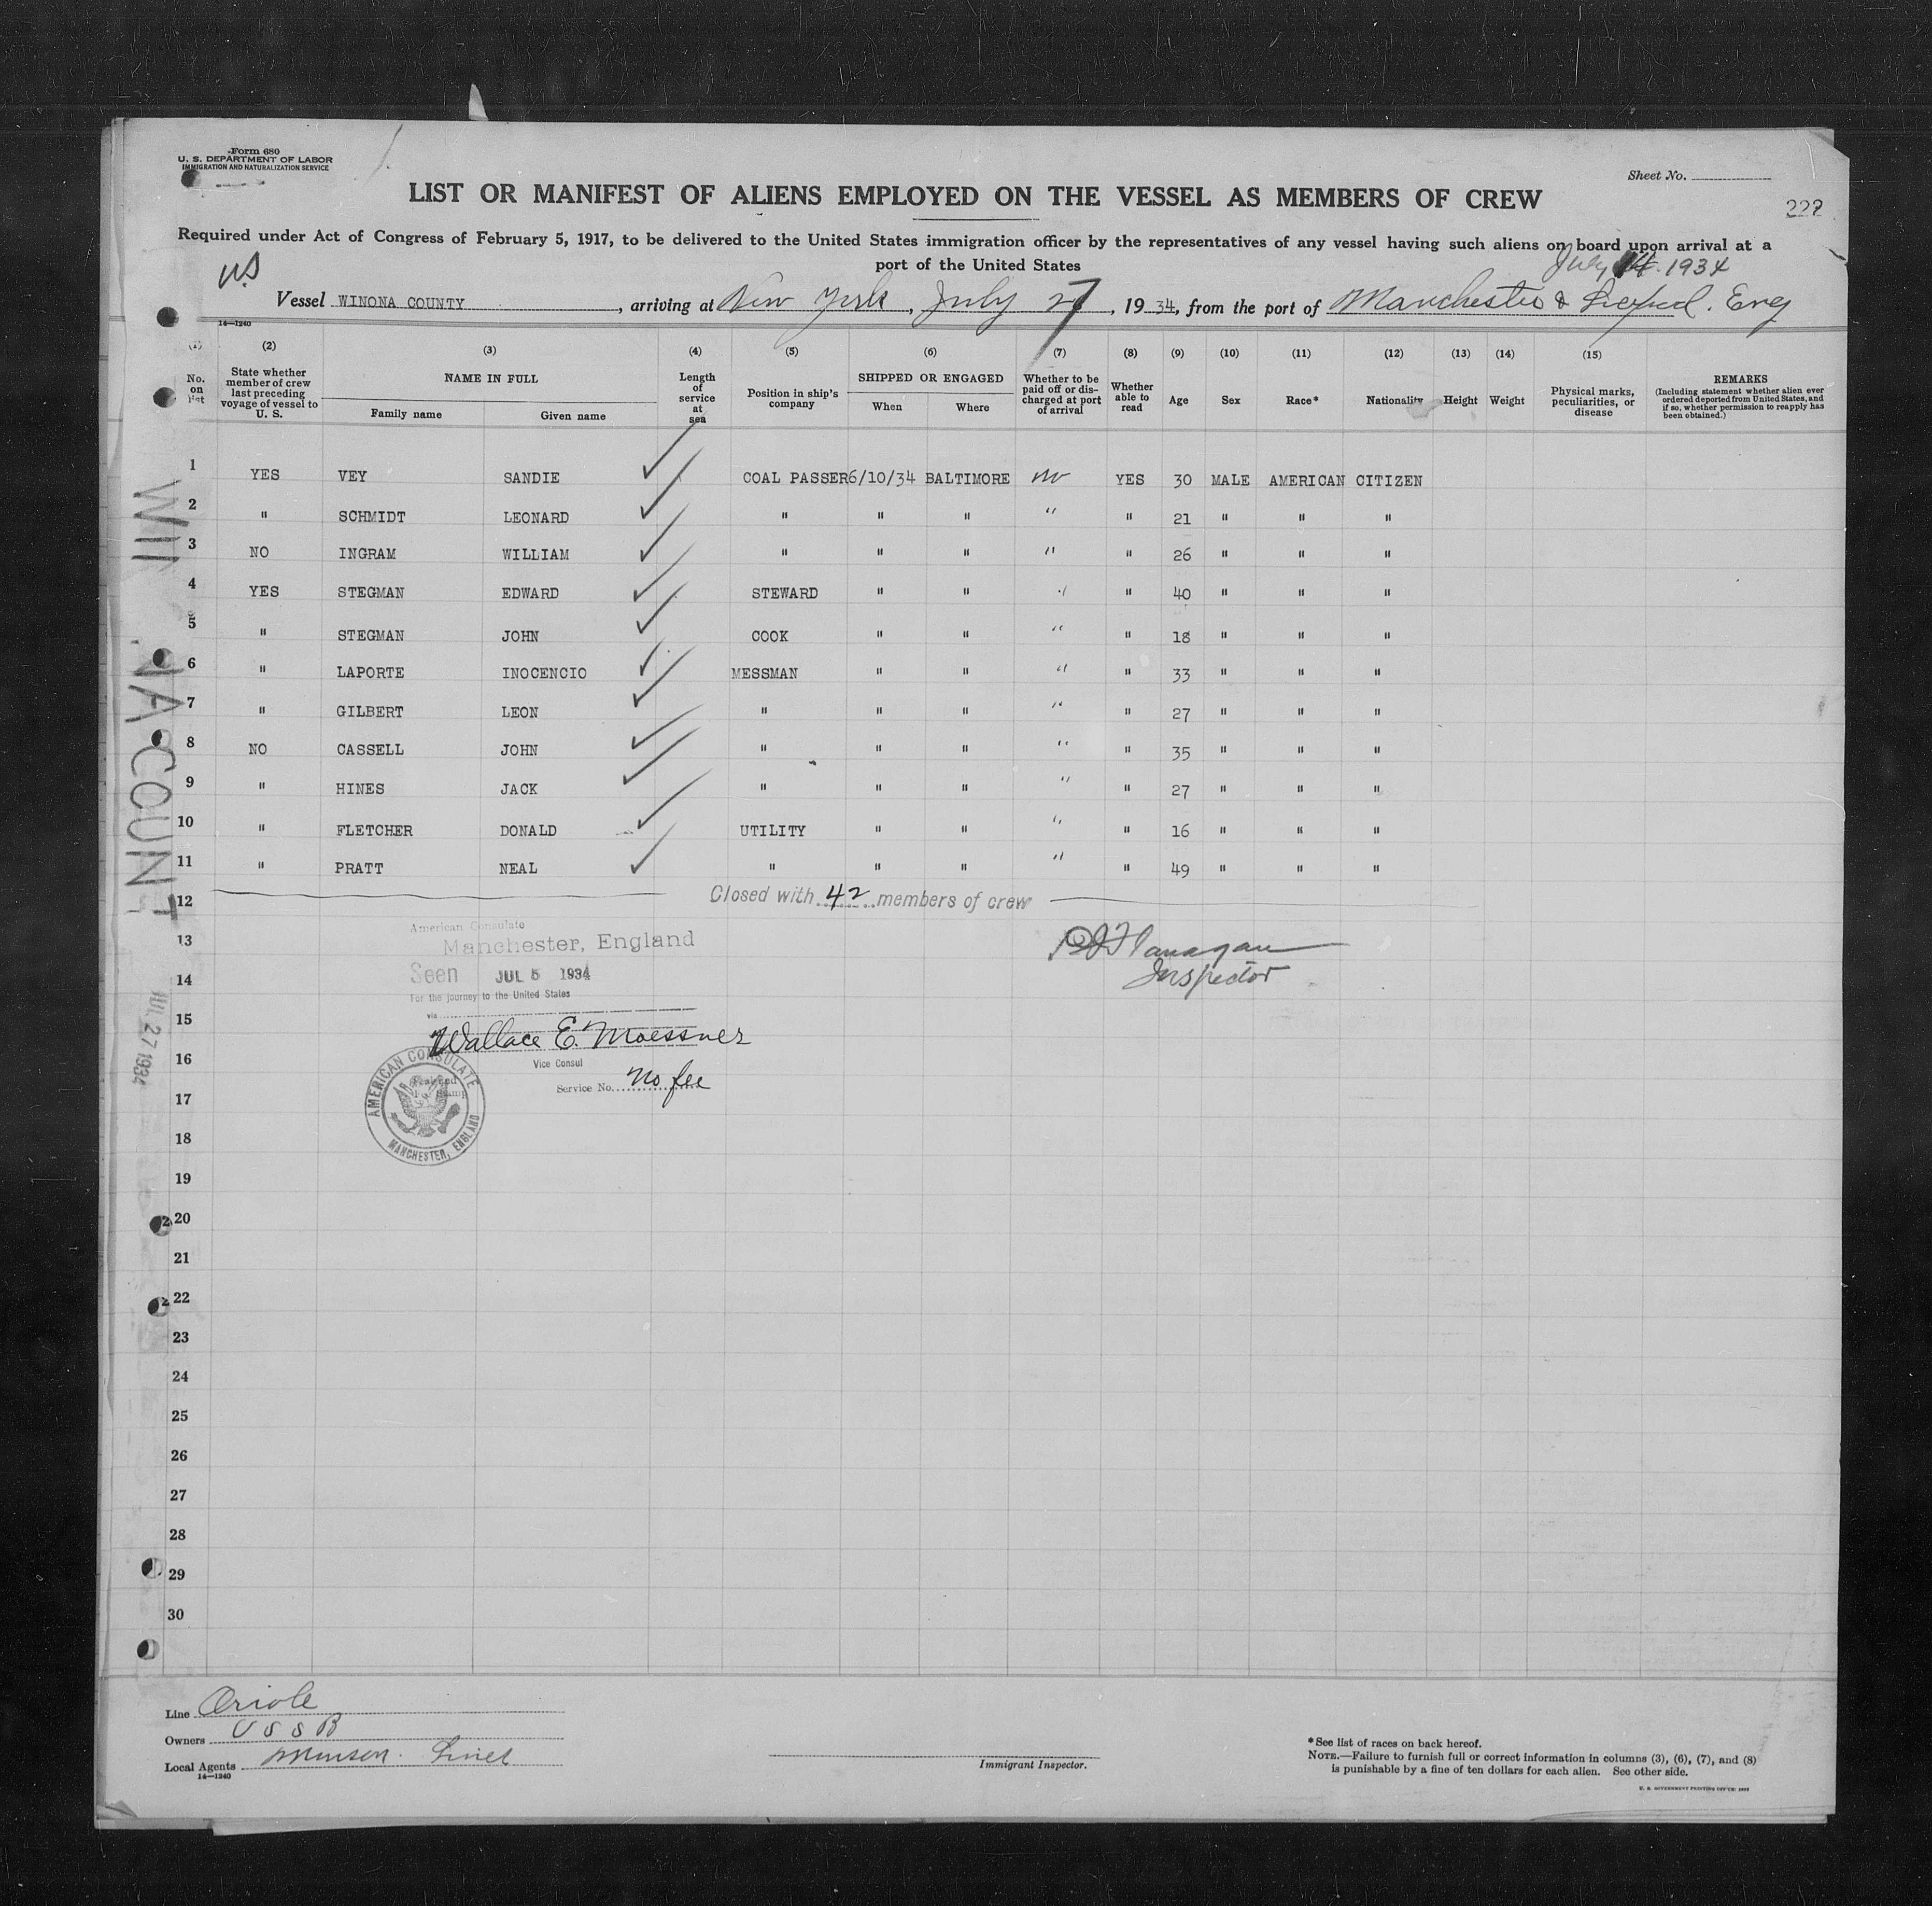 Form 680
U. S. DEPARTMENT OF LABOR
IMMIGRATION AND NATURALIZATION SERVICE
Sheet No.
LIST OR MANIFEST OF ALIENS EMPLOYED ON THE VESSEL AS MEMBERS OF CREW
222
Required under Act of Congress of February 5, 1917, to be delivered to the United States immigration officer by the representatives of any vessel having such aliens on board upon arrival at a
port of the United States
July 14. 1934
US
Vessel WINONA COUNTY, arriving at New York, July 27, 1934, from the port of Manchester & Liverpool. Eng
14—1240
(1) (2) (3) (4) (5) (6) (7) (8) (9) (10) (11) (12) (13) (14) (15)
No. on list
State whether member of crew last preceding voyage of vessel to U. S.
NAME IN FULL
Family name Given name
Length of service at sea
Position in ship's company
SHIPPED OR ENGAGED
When Where
Whether to be paid off or discharged at port of arrival
Whether able to read
Age Sex Race* Nationality Height Weight
Physical marks, peculiarities, or disease
REMARKS
(Including statement whether alien ever ordered deported from United States, and if so, whether permission to reapply has been obtained.)
1 YES VEY SANDIE COAL PASSER 6/10/34 BALTIMORE no YES 30 MALE AMERICAN CITIZEN
2 " SCHMIDT LEONARD " " " " " 21 " " "
3 NO INGRAM WILLIAM " " " " " 26 " " "
4 YES STEGMAN EDWARD STEWARD " " " " 40 " " "
5 " STEGMAN JOHN COOK " " " " 18 " " "
6 " LAPORTE INOCENCIO MESSMAN " " " " 33 " " "
7 " GILBERT LEON " " " " " 27 " " "
8 NO CASSELL JOHN " " " " " 35 " " "
9 " HINES JACK " " " " " 27 " " "
10 " FLETCHER DONALD UTILITY " " " " 16 " " "
11 " PRATT NEAL " " " " " 49 " " "
12 Closed with 42 members of crew
13
14
15
16
17
18
19
20
21
22
23
24
25
26
27
28
29
30
American Consulate
Manchester, England
Seen JUL 5 1934
For the journey to the United States
via
Wallace E. Moessner
Vice Consul
Service No. No fee
AMERICAN CONSULATE
MANCHESTER, ENGLAND
Flanagan
Inspector
JUL 27 1934
Line Oriole
Owners USSB
Local Agents Munson Lines
14—1240
Immigrant Inspector.
*See list of races on back hereof.
NOTE.—Failure to furnish full or correct information in columns (3), (6), (7), and (8)
is punishable by a fine of ten dollars for each alien. See other side.